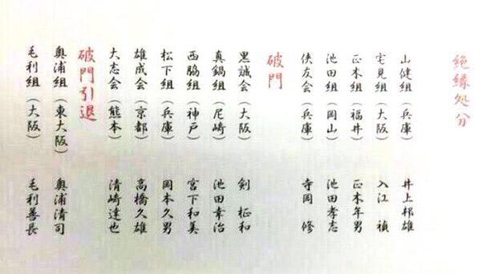 絶縁処分
山健組（兵庫） 井上邦雄
宅見組（大阪） 入江 禎
正木組（福井） 正木年男
池田組（岡山） 池田孝志
侠友会（兵庫） 寺岡 修
破門
黒誠会（大阪） 剣 政和
真鍋組（尼崎） 池田幸治
西脇組（神戸） 宮下和美
松下組（兵庫） 岡本久男
雄成会（京都） 高橋久雄
大志会（熊本） 清崎達也
破門引退
奥浦組（東大阪） 奥浦清司
毛利組（大阪） 毛利善長